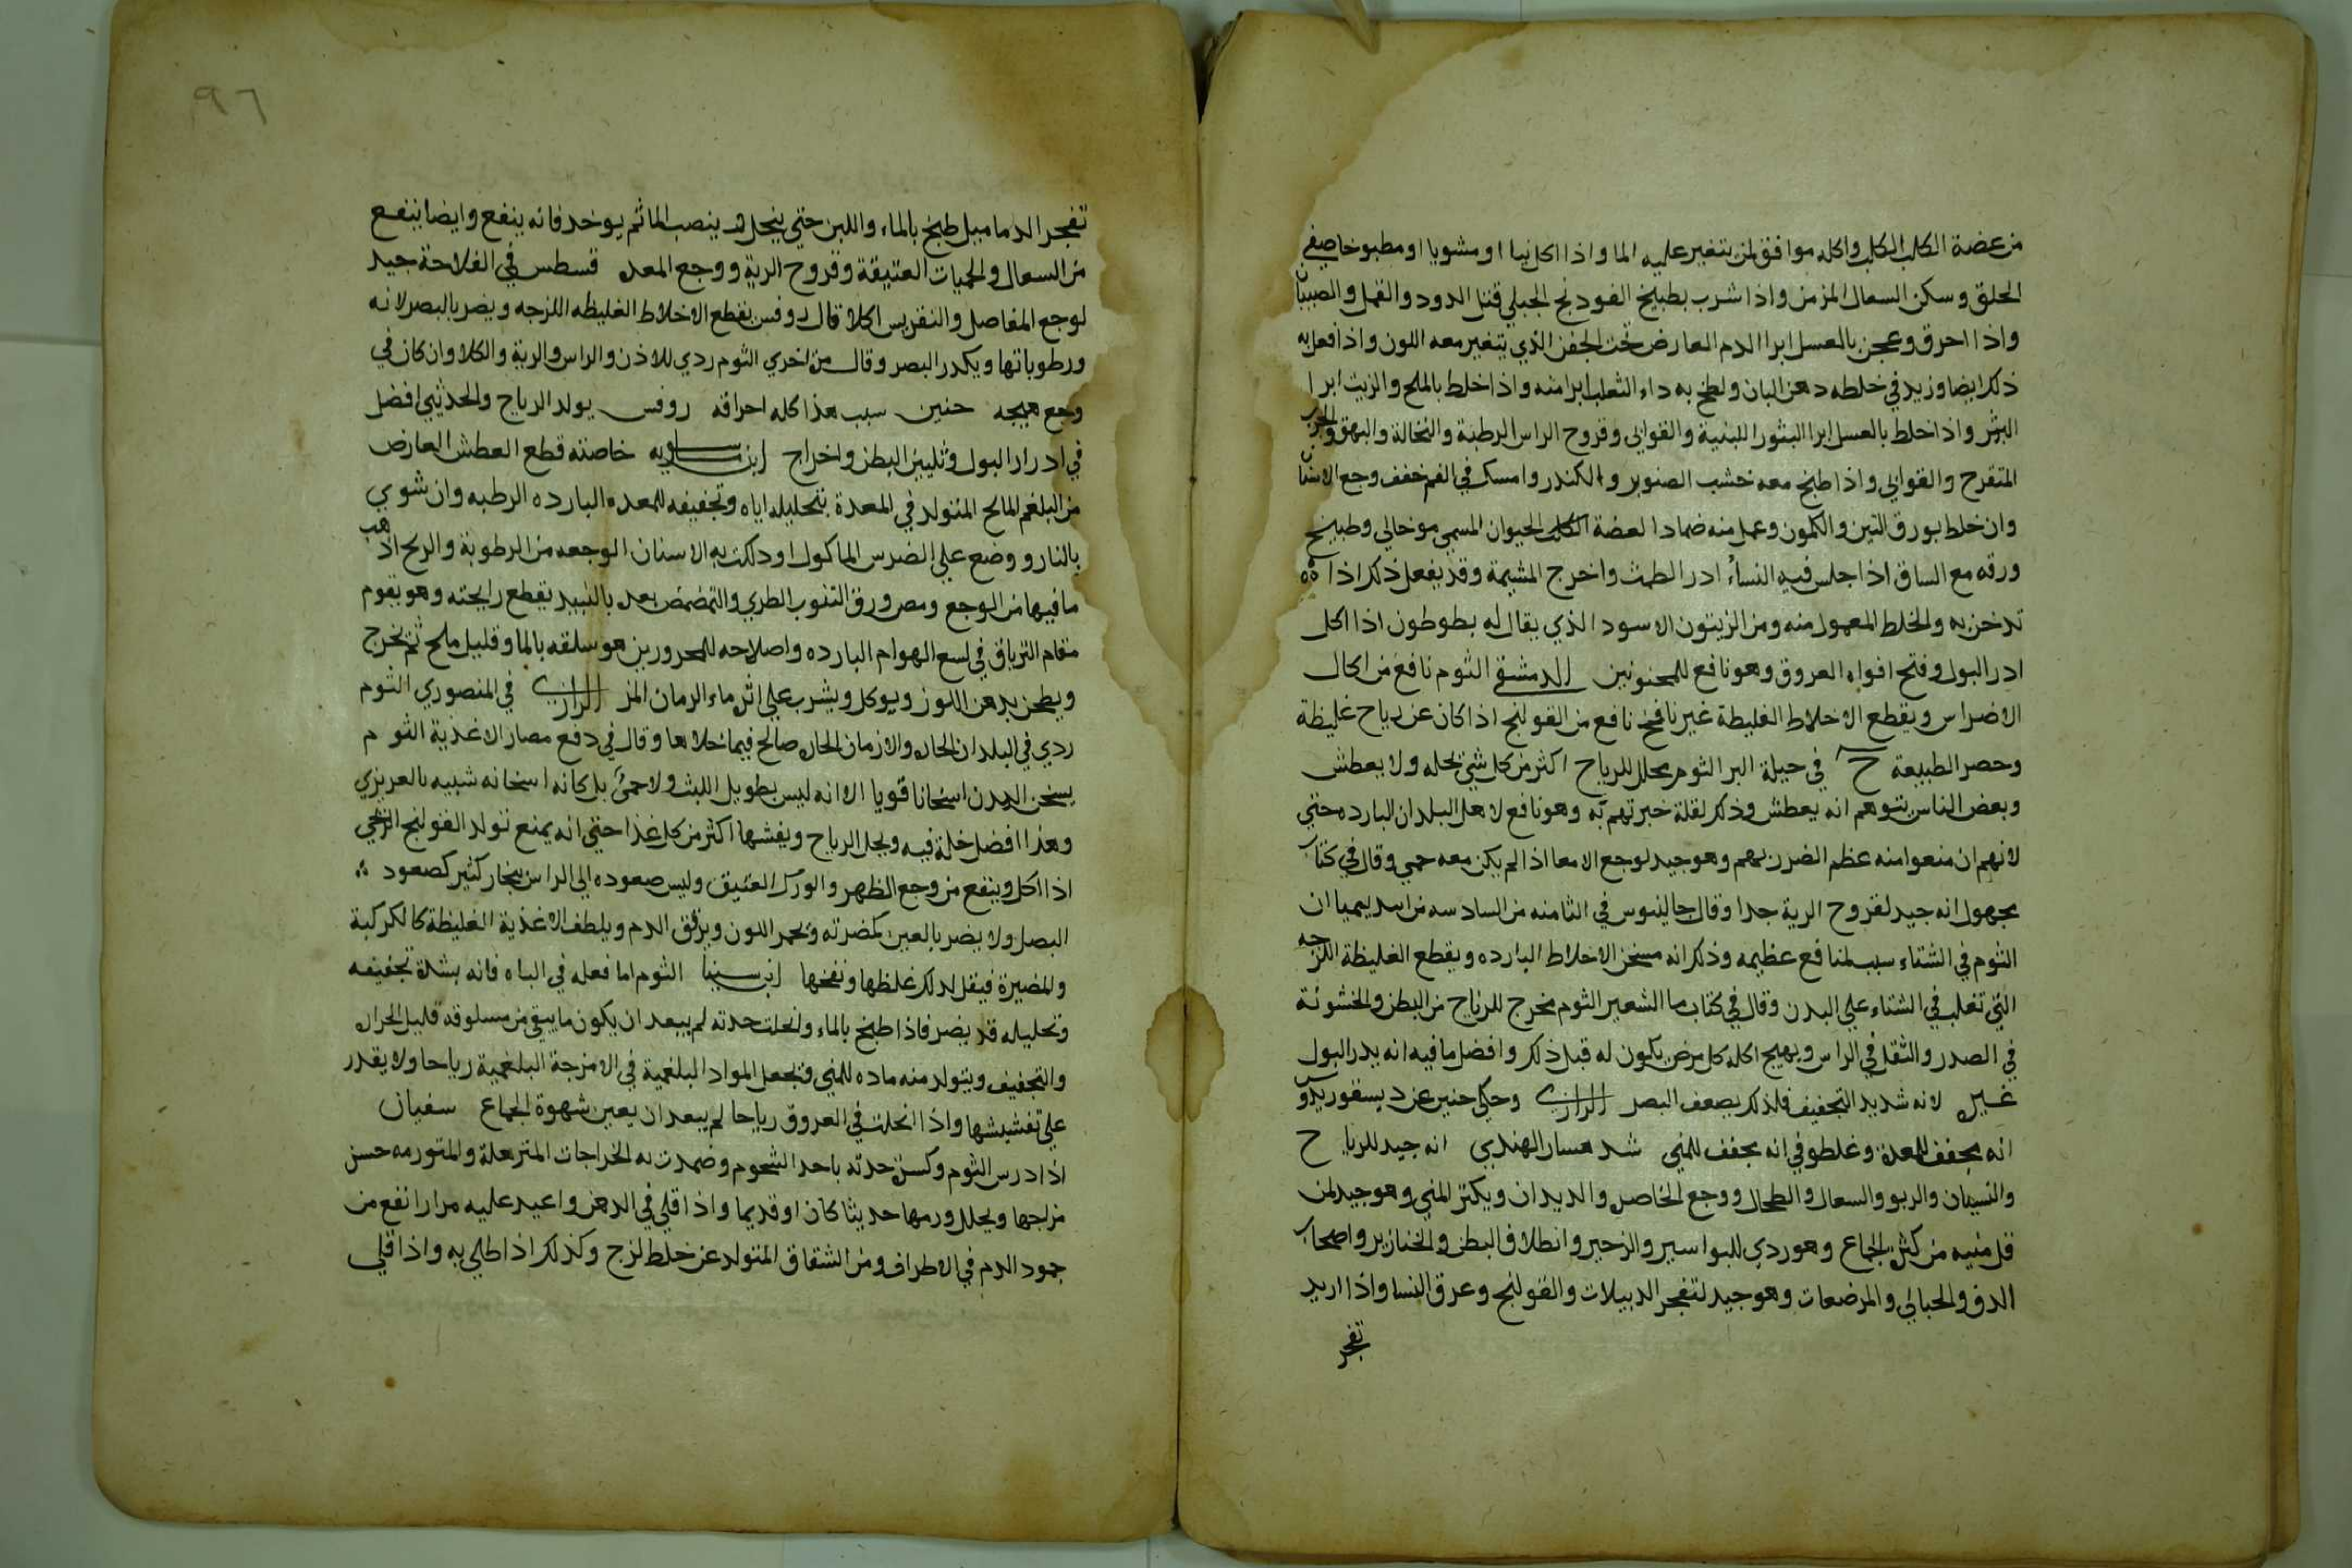 من عضة الكلب الكلب واكله موافق لمن يتغير عليه الما واذا اكل نيا او مشويا او مطبوخا صفي
الحلق وسكن السعال المزمن واذا شرب بطبيخ الفودنج الجبلي قتل الدود والقمل والصيبان
واذا احرق وعجن بالعسل ابرا الدم العارض تحت الجفن الذي يتغير معه اللون واذا فعل به
ذلك ايضا وزيد في خلطه دهن البان ولطخ به داء الثعلب ابرا منه واذا خلط بالملح والزيت ابرا
البثر واذا خلط بالعسل ابرا البثور اللبنية والقوابي وقروح الراس الرطبة والنخالة والبهق والجرب
المتقرح والقوابي واذا طبخ معه خشب الصنوبر والكندر وامسك في الفم خفف وجع الاسنان
وان خلط بورق التين والكمون وعمل منه ضمادا لعضة الكلب الحيوان المسمي موخالي وطبيخ
ورقه مع الساق اذا جلس فيه النساء ادر الطمث واخرج المشيمة وقد يفعل ذلك اذا
تدخن به والخلط المعمول منه ومن الزيتون الاسود الذي يقال له بطوطون اذا اكل
ادر البول وفتح افواه العروق وهو نافع للمحبونين الدمشقي الثوم نافع من اكال
الاضراس ويقطع الاخلاط الغليظة غير نافخ نافع من القولنج اذا كان عن رياح غليظة
وحصر الطبيعة ج في حيلة البر الثوم يحلل للرياح اكثر من كل شي يحله ولا يعطش
وبعض الناس يتوهم انه يعطش وذلك لقلة خبرتهم به وهو نافع لاهل البلدان البارده حتي
لانهم ان منعوا منه عظم الضرر بهم وهو جيد لوجع الامعا اذا لم يكن معه حمي وقال في كتاب
مجهول انه جيد لقروح الرية جدا وقال جالينوس في الثامنه من السادسه من ابيديميا ان
الثوم في الشتاء سبب لمنافع عظيمه وذلك انه مسخن الاخلاط البارده ويقطع الغليظة اللزجه
التي تغلب في الشتاء علي البدن وقال في كتاب ما الشعير الثوم مخرج للرياح من البطن والخشونة
في الصدر والثقل في الراس ويهيج اكله كل مرض يكون له قبل ذلك وافضل ما فيه انه يدر البول
غيره لانه شديد التجفيف فلذلك يضعف البصر الرازي وحكي حنين عن ديسقوريدو
انه يجفف المعدة وغلطو في انه يجفف المني شد هسار الهندي انه جيد للرياح
والنسيان والربو والسعال والطحال ووجع الخاصره والديدان ويكثر المني وهو جيد لمن
قل منيه من كثرة الجماع وهو ردي للبواسير والزحير وانطلاق البطن والخنازير واصحاب
الدق والحبالي والمرضعات وهو جيد لتفجر الدبيلات والقولنج وعرق النسا واذا اريد
تفجر
٩٦
تفجر الدماميل طبخ بالماء واللبن حتي ينحل قد ينصب الما ثم يوخذ فانه ينفع وايضا ينفع
من السعال والحميات العتيقة وقروح الرية ووجع المعده قسطس في الفلاحة جيد
لوجع المفاصل والنقريس اكلا قال روفس يقطع الاخلاط الغليظه اللزجه ويضر بالبصر لانه
ورطوباتها ويكدر البصر وقال من اخري الثوم ردي للاذن والراس والرية والكلا وان كان في
وجع هيجه حنين سبب هذا كله احراقه روفس يولد الرياح والحدثيي افضل
في ادرار البول وتليين البطن واخراج ابن ماسويه خاصته قطع العطش العارض
من البلغم المالح المتولد في المعدة بتحليله اياه وتجفيفه للمعده البارده الرطبه وان شوي
بالنار ووضع علي الضرس الماكول او دلكت به الاسنان الوجعه من الرطوبة والريح اذهب
ما فيها من الوجع ومص ورق التنوب الطري والتمضمض بعده بالنبيد يقطع رايحته وهو يقوم
مقام الترياق في لسع الهوام البارده واصلاحه للمحرورين هو سلقه بالما وقليل ملح ثم تخرج
ويطحن بدهن اللوز ويوكل ويشرب علي اثره ماء الرمان المز الرازي في المنصوري الثوم
ردي في البلدان الحاره والازمان الحاره صالح فيما خلاها وقال في دفع مضار الاغذية الثوم
يسخن البدن اسخانا قويا الا انه ليس بطويل اللبث ولا حمي بل كانه اسخانه شبيه بالغريزي
وهذا افضل خلة فيه ويحل الرياح ويفشها اكثر من كل غذا حتي انه يمنع تولد القولنج الريحي
اذا اكل وينفع من وجع الظهر والورك العتيق وليس صعوده الي الراس ببخار كثير كصعود ؞
البصل ولا يضر بالعين كمضرته ويحمر اللون ويرقق الدم ويلطف الاغذية الغليظة كالكركبة
والمضيرة فيقل لذلك غلظها ونفخها ابن سينا الثوم اما فعله في الباه فانه بشدة تجفيفه
وتحليله قد يضر فاذا طبخ بالماء وانحلت حدته لم يبعد ان يكون ما يبقي من مسلوقه قليل الحراره
والتجفيف ويتولد منه ماده للمني وتجعل المواد البلغمية في الامزجة البلغمية رياحا ولا يقدر
علي تفشيشها واذا انحلت في العروق رياحا لم يبعد ان يعين شهوة الجماع سفيان
اذا درس الثوم وكسرت حدته باحد الشحوم وضمدت به الخراجات المترهلة والمتورمه حسن
مزاجها ويحلل ورمها حديثا كان او قديما واذا قلي في الدهن واعيد عليه مرارا نفع من
جمود الدم في الاطراف ومن الشقاق المتولد عن خلط لزج وكذلك اذا طلي به واذا قلي